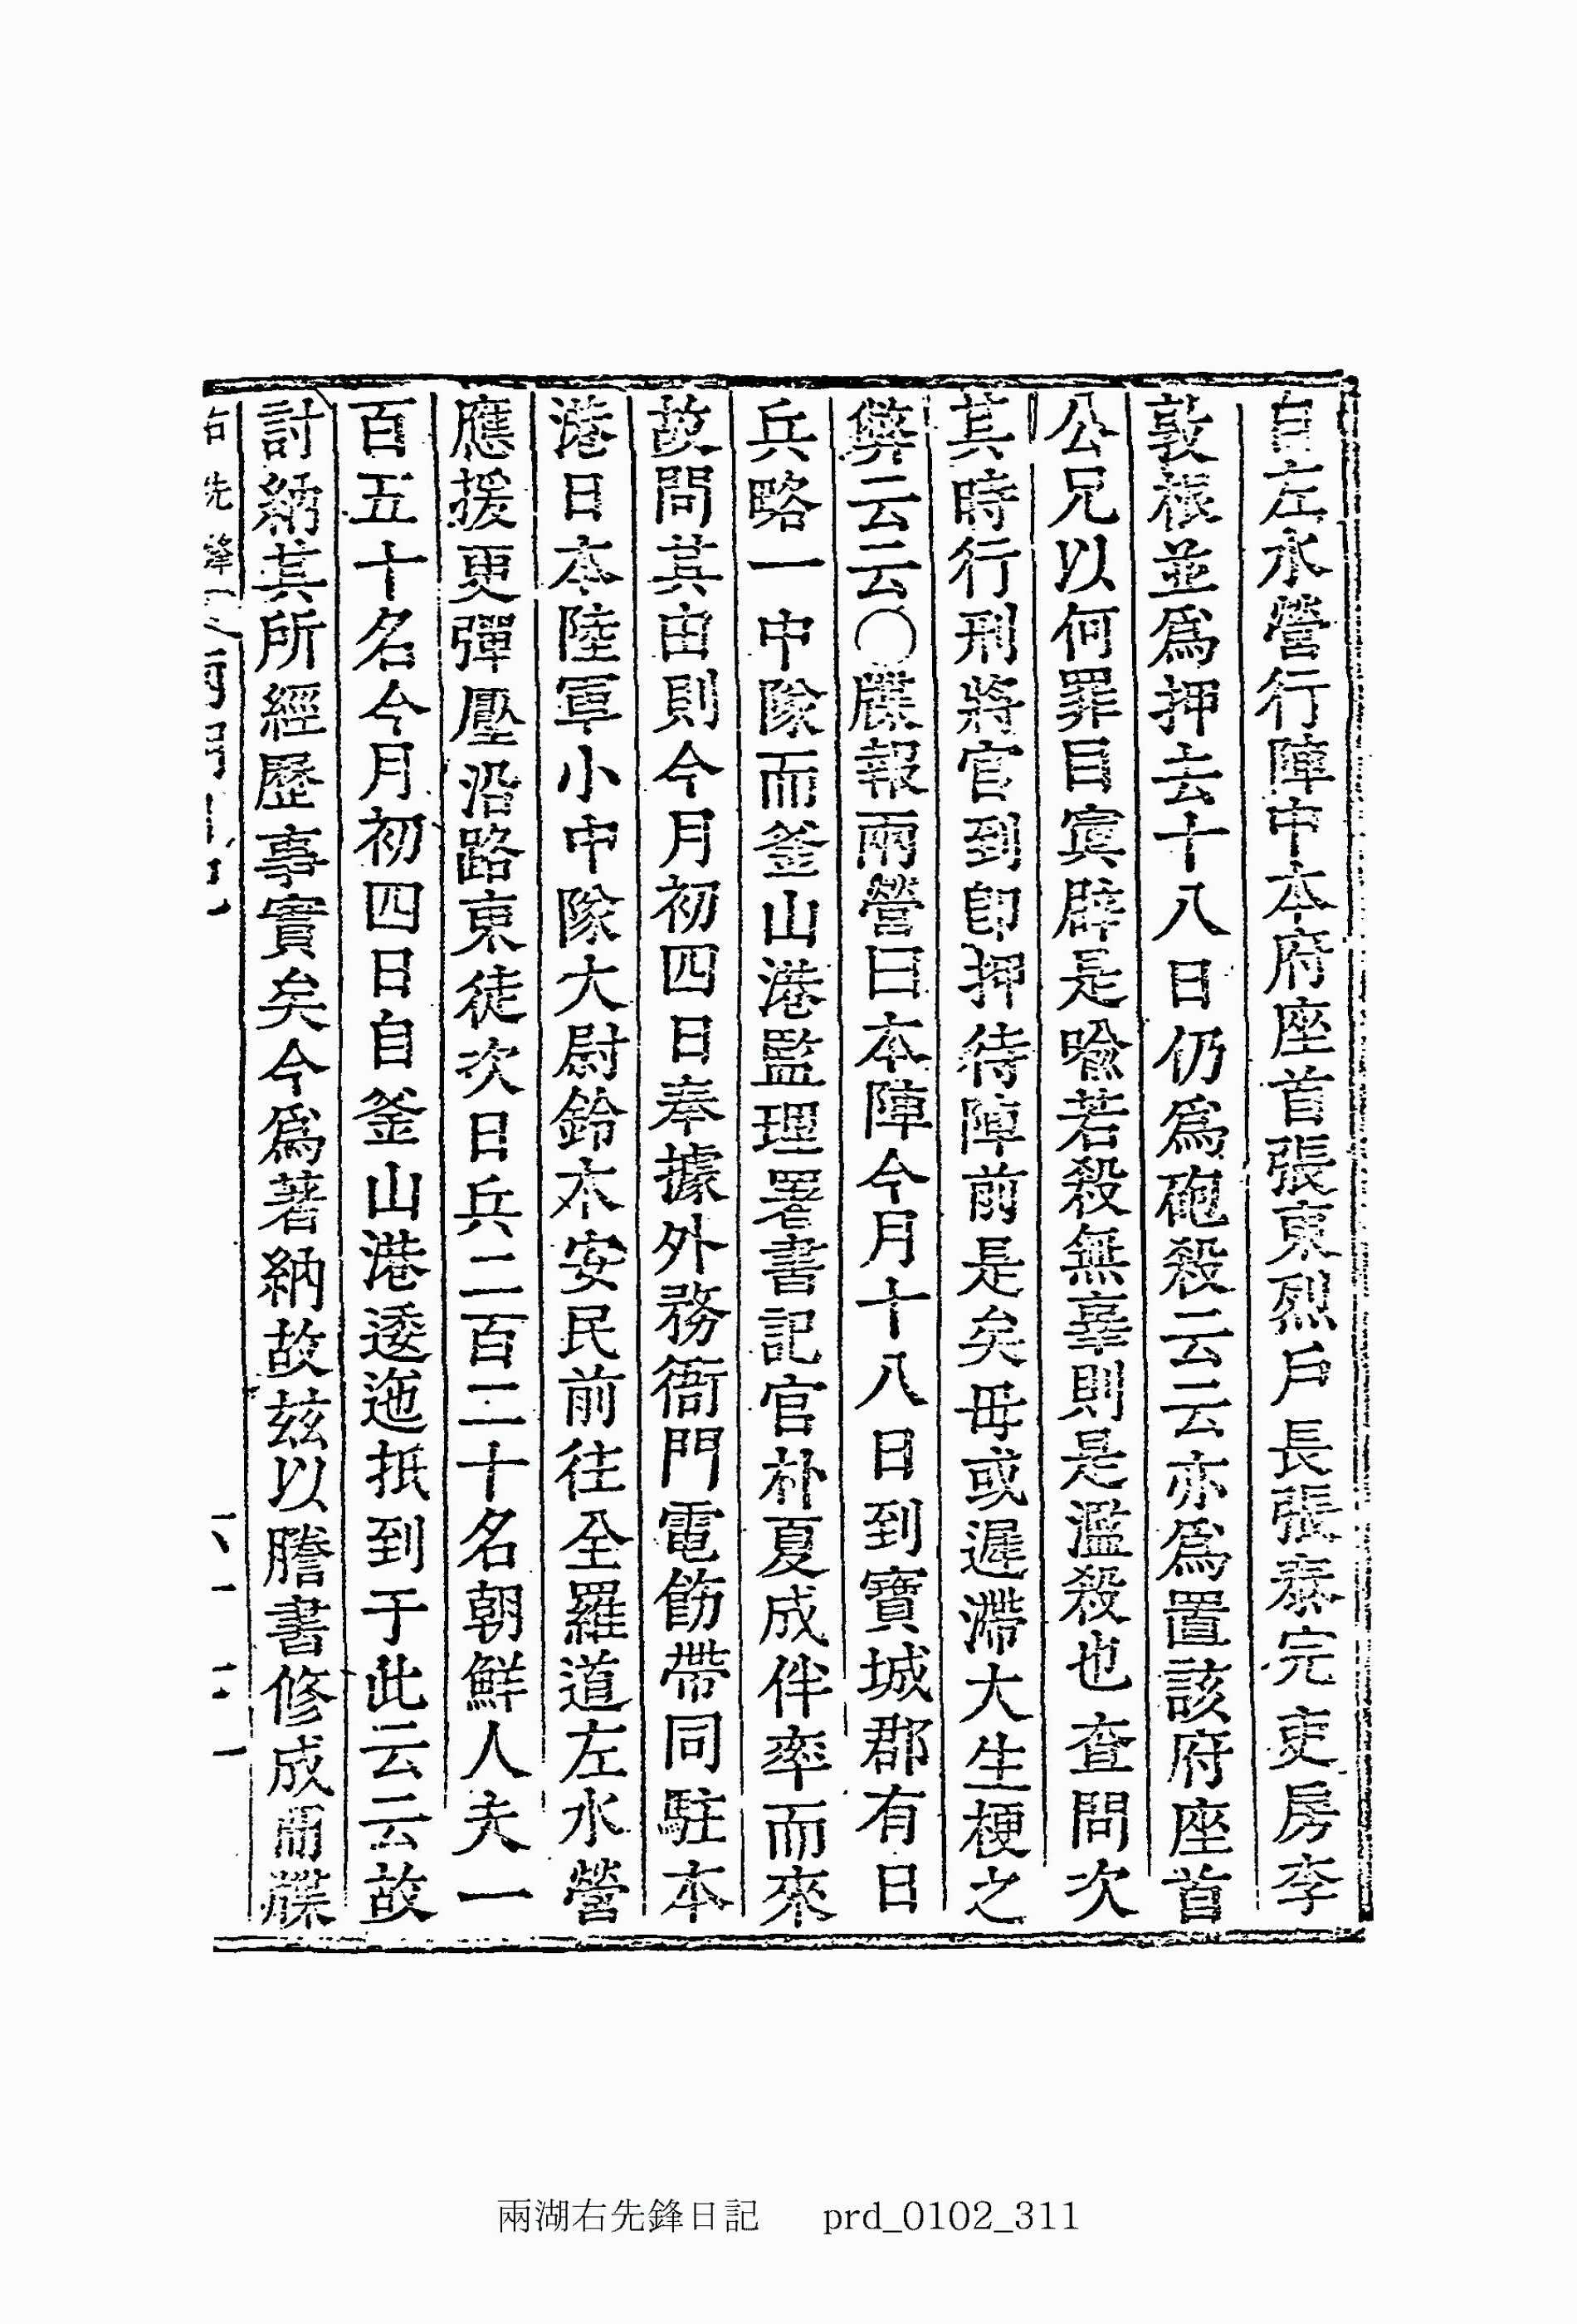 自左水營行陣中本府座首張東烈戶長張泰完吏房李
敦根並爲押去十八日仍爲砲殺云云亦爲置該府座首
公兄以何罪目寘辟是喩若殺無辜則是濫殺也查問次
其時行刑將官到卽押待陣前是矣毋或遲滯大生梗之
弊云云〇牒報兩營曰本陣今月十八日到寶城郡有日
兵略一中隊而釜山港監理署書記官朴夏成伴率而來
故問其由則今月初四日奉據外務衙門電飭帶同駐本
港日本陸軍小中隊大尉鈴木安民前往全羅道左水營
應援更彈壓沿路東徒次日兵二百二十名朝鮮人夫一
百五十名今月初四日自釜山港逶迤抵到于此云云故
討納其所經歷事實矣今爲著納故玆以謄書修成冊牒
右先鋒
兩湖右先鋒日記 prd_0102_311